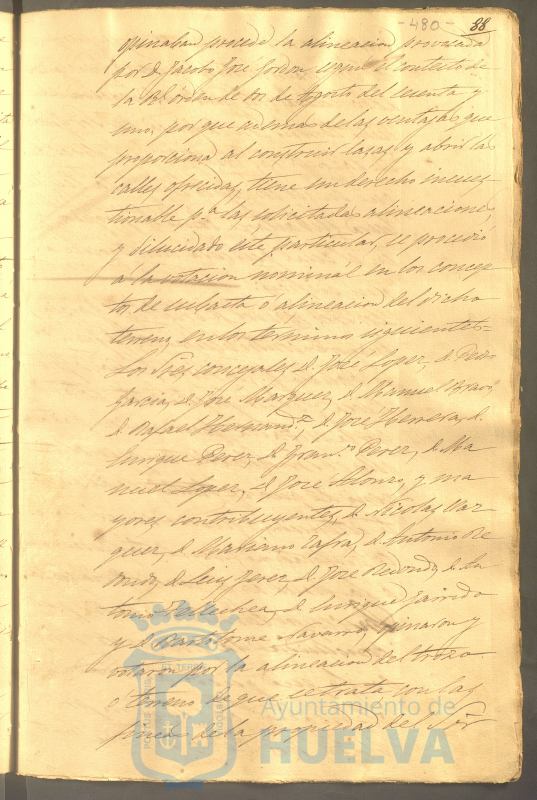 -480- 88
opinaban procede la alineacion provocada
por D. Jacobo José Jordan, segun el contesto de
la Rl. órden de dos de Agosto del sesenta y
uno; por que ademas de las ventajas que
proporciona al construir casas y abrir las
calles ofrecidas, tiene un derecho incues-
tionable pa. las solicitadas alineaciones,
y dilucidado éste particular, se procedió
á la votacion nominal en los concep-
tos, de subasta ó alineacion del dicho
terreno, en los terminos siguientes=
Los Sres. concejales, D. José Lopez, D. Pedro
Garcia, D. José Marquez, D. Manuel Bravo,
D. Rafael Hernandz., D. José Herrera, D.
Enrique Perez, D. Franco. Perez, D. Ma
nuel Lopez, D. José Alonzo, y ma
yores contribuyentes, D. Nicolas Vaz
quez, D. Mariano Zafra, D. Antonio Re
dondo, D. Luis Perez, D. José Redondo, D. An
tonio D. Enrique Garrido
y D. Bartolome Navarro, opinaron y
votaron por la alineacion del trozo
o terreno de que se trata con las
fincas de la propiedad de
Ayuntamiento de
HUELVA